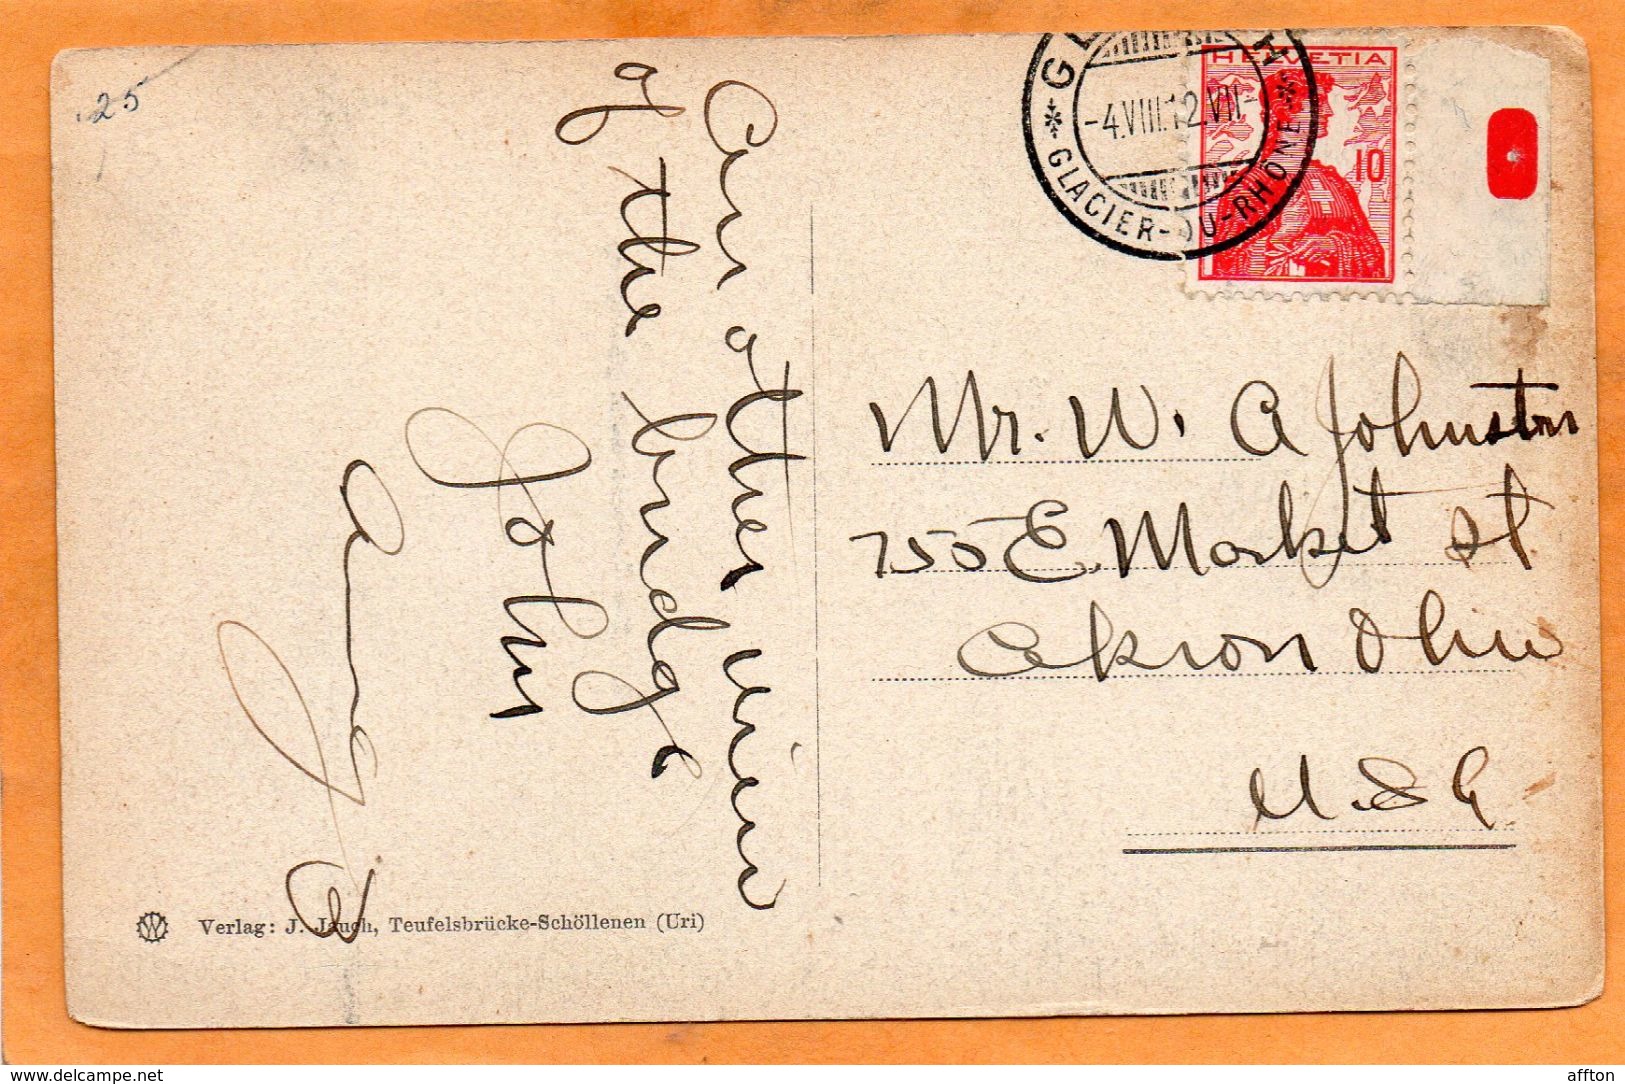 .25
An other view
of the bridge
John
Aug 2
Verlag: J. Jauch, Teufelsbrücke-Schöllenen (Uri)
HELVETIA
10
-4.VIII.12.VII-
GLACIER-DU-RHÔNE
Mr. W. A Johnston
750 E. Market st
Akron Ohio
U.S.A
www.delcampe.net
affton